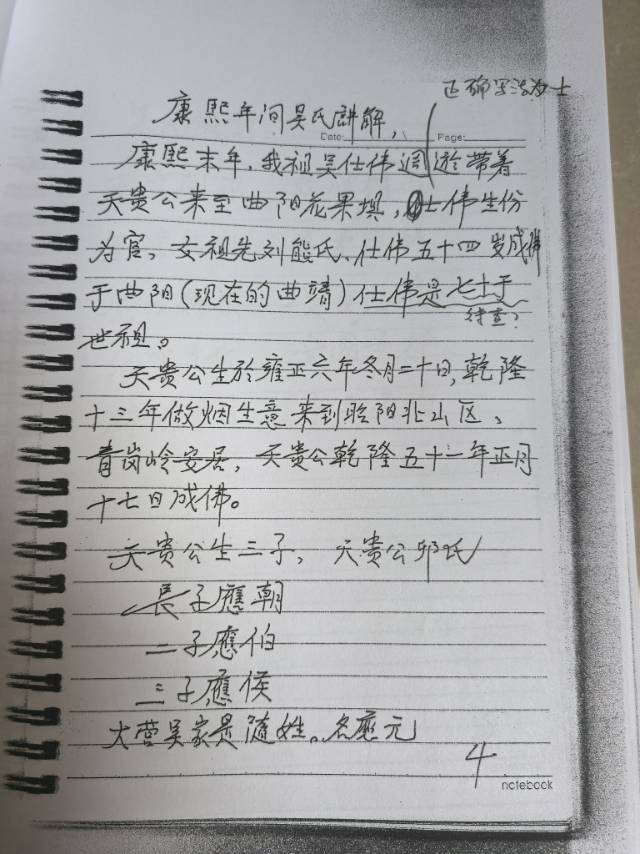 正确写法为士
康熙年间吴氏讲解,
Date: Page:
康熙末年,我祖吴仕伟週遊带着
天贵公来至曲阳花果坝,仕伟生份
为官,女祖先刘熊氏、仕伟五十四岁成佛
于曲阳(现在的曲靖)仕伟是七十于
待查?
世祖。
天贵公生於雍正六年冬月二十日,乾隆
十三年做烟生意来到昭阳北山区、
青岗岭安居,天贵公乾隆五十一年正月
十七日成佛。
天贵公生三子, 天贵公邓氏
長子應朝
二子應伯
三子應侯
大营吴家是随姓。名應元
4
notebook